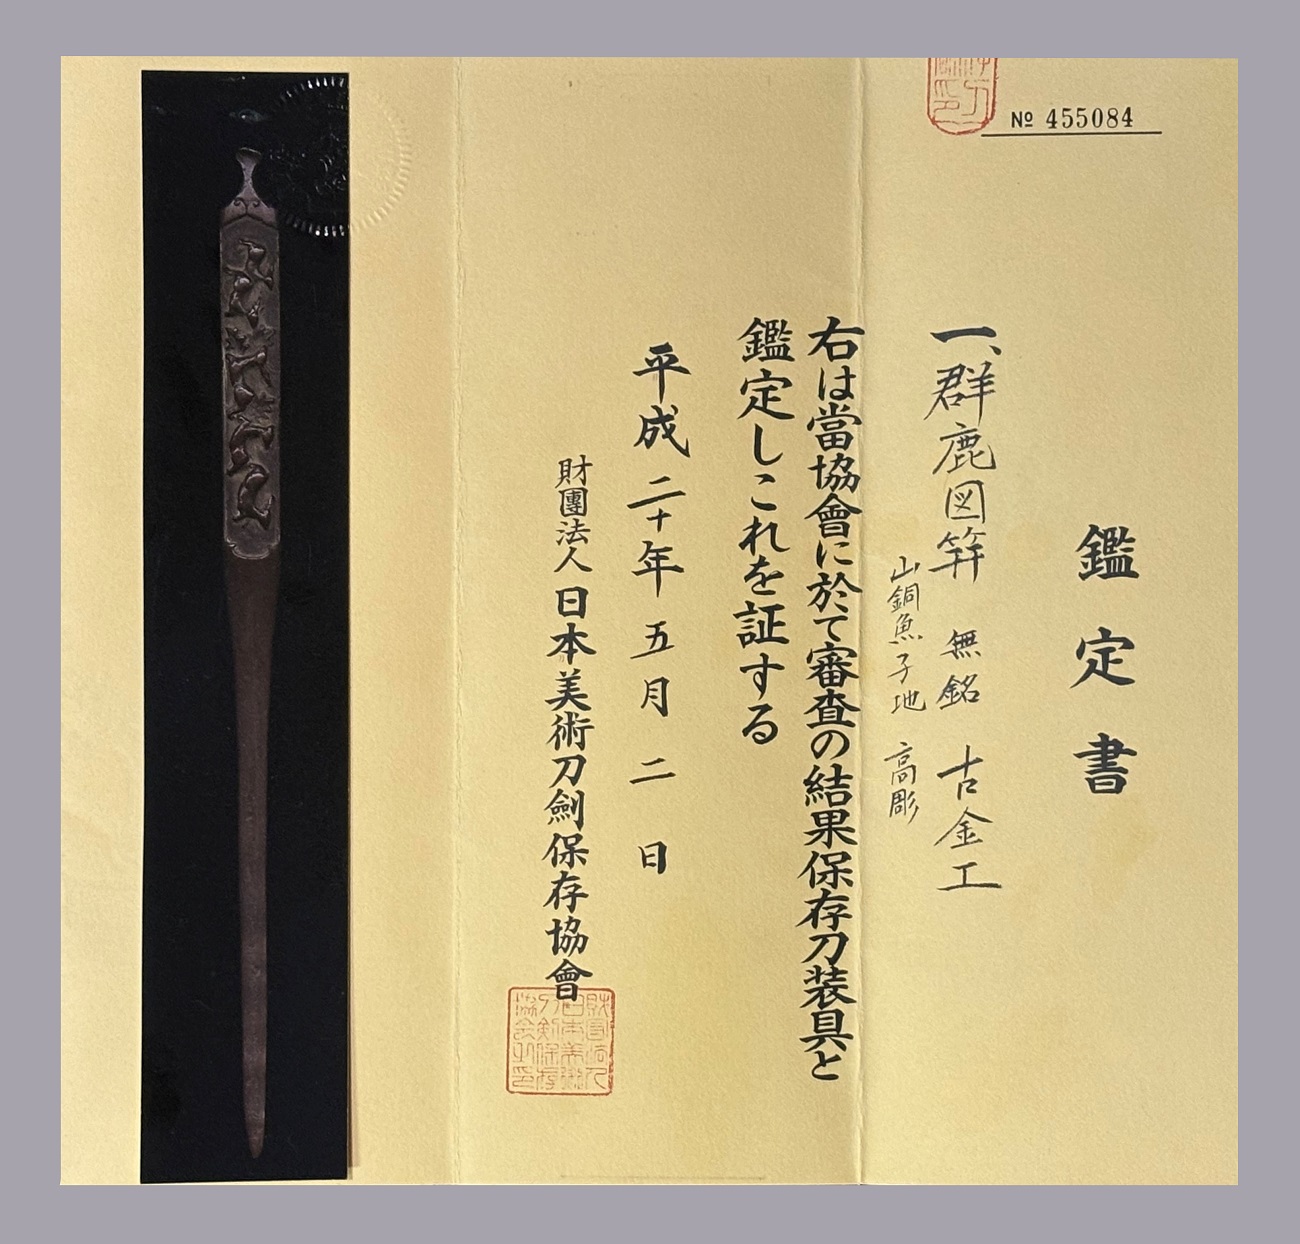 № 455084
鑑定書
一、群鹿図笄 無銘 古金工
山銅魚子地 高彫
右は當協會に於て審査の結果保存刀装具と
鑑定しこれを証する
平成二十年五月二日
財團法人日本美術刀劍保存協會